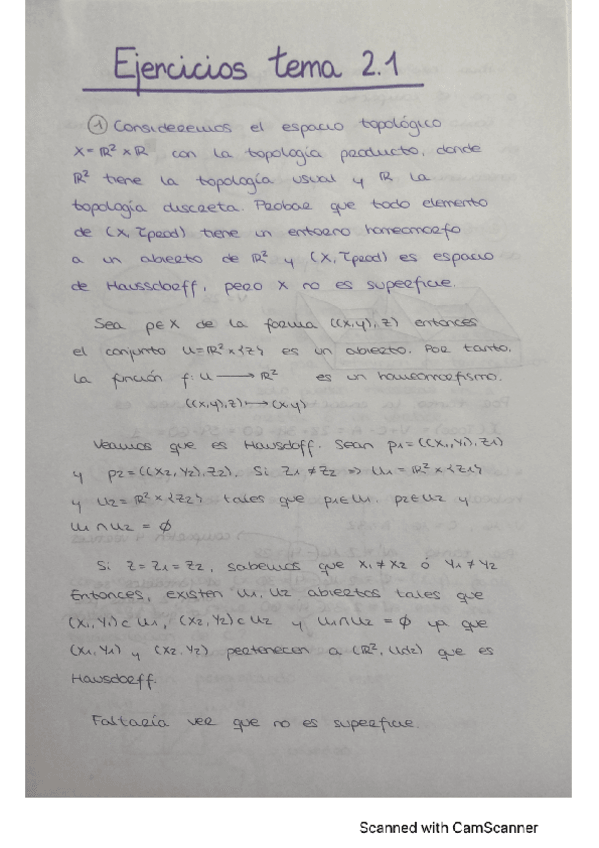 Ejercicios tema 2.1
① Consideremos el espacio topológico
X=ℝ²×ℝ con la topología producto, donde
ℝ² tiene la topología usual y ℝ la
topología discreta. Probar que todo elemento
de (X, τprod) tiene un entorno homeomorfo
a un abierto de ℝ² y (X, τprod) es espacio
de Haussdorff, pero X no es superficie.
Sea p∈X de la forma ((x,y),z) entonces
el conjunto U=ℝ²×{z} es un abierto. Por tanto,
la función f: U ⟶ ℝ² es un homeomorfismo.
((x,y),z) ⟼ (x,y)
Veamos que es Hausdoff. Sean p1=((x1,y1),z1)
y p2=((x2,y2),z2). Si z1≠z2 => U1=ℝ²×{z1}
y U2=ℝ²×{z2} tales que p1∈U1, p2∈U2 y
U1∩U2=∅
Si z=z1=z2, sabemos que x1≠x2 ó y1≠y2
Entonces, existen U1, U2 abiertos tales que
(x1,y1)⊂U1, (x2,y2)⊂U2 y U1∩U2=∅ ya que
(x1,y1) y (x2,y2) pertenecen a (ℝ², Ud2) que es
Hausdorff.
Faltaría ver que no es superficie.
Scanned with CamScanner